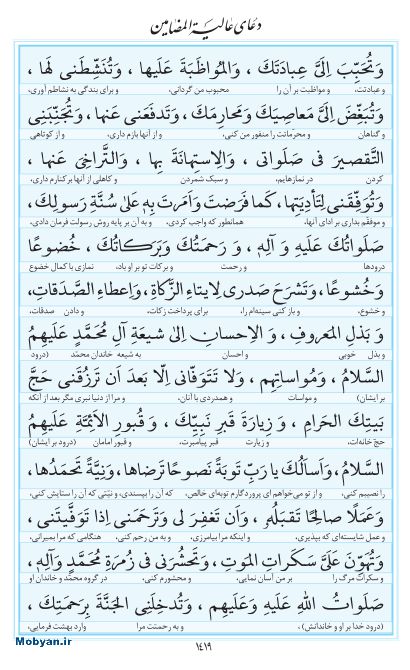 دعای عالیة المضامین
وَتُحَبِّبَ اِلَیَّ عِبادَتَكَ ، وَالْمُواظَبَةَ عَلَیها ، وَتُنَشِّطَنی لَها ،
و عبادتت، و مواظبت بر آن را محبوب من گردانی، و برای بندگی به نشاطم آوری،
وَتُبَغِّضَ اِلَیَّ مَعاصِیَكَ وَمَحارِمَكَ ، وَتَدفَعَنی عَنها ، وَتُجَنِّبَنِی
و گناهان و محرّماتت را منفور من کنی، و از آنها بازم داری، و از کوتاهی
التَّقصیرَ فی صَلَواتی ، وَالاِستِهانَةَ بِها ، وَالتَّراخِیَ عَنها ،
کردن در نمازهایم، و سبک شمردن و کاهلی از آنها برکنارم داری،
وَتُوَفِّقَنی لِتَأدِیَتِها ، کَما فَرَضتَ وَاَمَرتَ بِهِ عَلیٰ سُنَّةِ رَسولِكَ ،
و موفّقم بداری بر ادای آنها، همانطور که واجب کردی، و به آن بر پایه روش رسولت فرمان دادی،
صَلَواتُكَ عَلَیهِ وَ آلِهِ ، وَ رَحمَتُكَ وَ بَرَکاتُكَ ، خُضوعًا
درودها و رحمت و برکات تو بر او باد، نمازی با کمال خضوع
وَخُشوعًا ، وَتَشرَحَ صَدری لِایتاءِ الزَّکاةِ ، وَاِعطاءِ الصَّدَقاتِ ،
و خشوع، و باز کنی سینه‌ام را، برای پرداخت زکات، و دادن صدقات،
وَ بَذلِ المَعروفِ ، وَ الاِحسانِ اِلیٰ شیعَةِ آلِ مُحَمَّدٍ عَلَیهِمُ
و بذل خوبی و احسان به شیعه خاندان محمّد (درود
السَّلامُ ، وَمُواساتِهِم ، وَلا تَتَوَفّانی اِلّا بَعدَ اَن تَرزُقَنی حَجَّ
بر ایشان) و مواسات و همدردی با آنان، و مرا از دنیا نبری مگر بعد از آنکه
بَیتِكَ الحَرامِ ، وَ زِیارَةَ قَبرِ نَبِیِّكَ ، وَ قُبورِ الاَئِمَّةِ عَلَیهِمُ
حجّ خانه‌ات، و زیارت قبر پیامبرت، و قبور امامان (درود بر ایشان)
السَّلامُ، وَاَسأَلُكَ یا رَبِّ تَوبَةً نَصوحًا تَرضاها، وَنِیَّةً تَحمَدُها،
را نصیبم کنی، و از تو می‌خواهم ای پروردگارم توبه‌ای خالص، که آن را بپسندی، و نیّتی که آن را ستایش کنی،
وَعَمَلًا صالِحًا تَقبَلُهُ ، وَاَن تَغفِرَ لی وَتَرحَمَنی اِذا تَوَفَّیتَنی ،
و عمل شایسته‌ای که بپذیری، و اینکه مرا بیامرزی، و به من رحم کنی، هنگامی که مرا بمیرانی،
وَتُهَوِّنَ عَلَیَّ سَکَراتِ المَوتِ ، وَتَحشُرَنی فی زُمرَةِ مُحَمَّدٍ وَآلِهِ ،
و سکرات مرگ را بر من آسان نمایی، و محشورم کنی، در گروه محمّد و خاندان او
صَلَواتُ اللهِ عَلَیهِ وَعَلَیهِم ، وَ تُدخِلَنِی الجَنَّةَ بِرَحمَتِكَ ،
(درود خدا بر او و خاندانش)، و به رحمتت مرا وارد بهشت فرمایی،
۱٤۱۹
Mobyan.ir